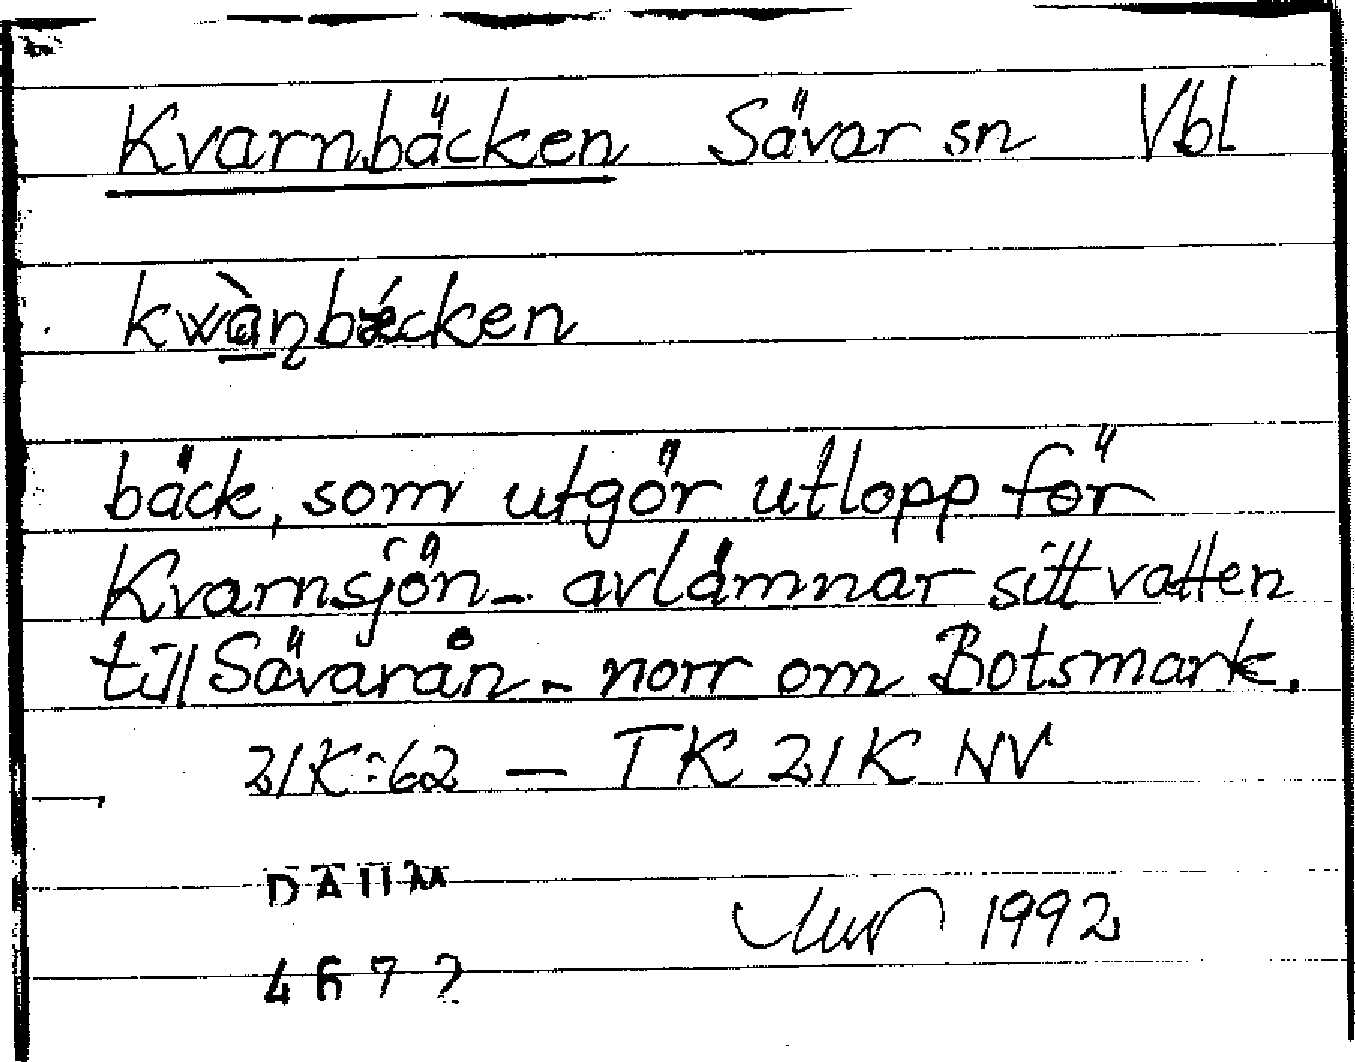 Kvarnbäcken Sävar sn Vbl
kwànbǽcken
bäck, som utgör utlopp för
Kvarnsjön - avlämnar sitt vatten
till Sävarån - norr om Botsmark.
21K:62 — TK 21K NV
DAUM
1992
4672